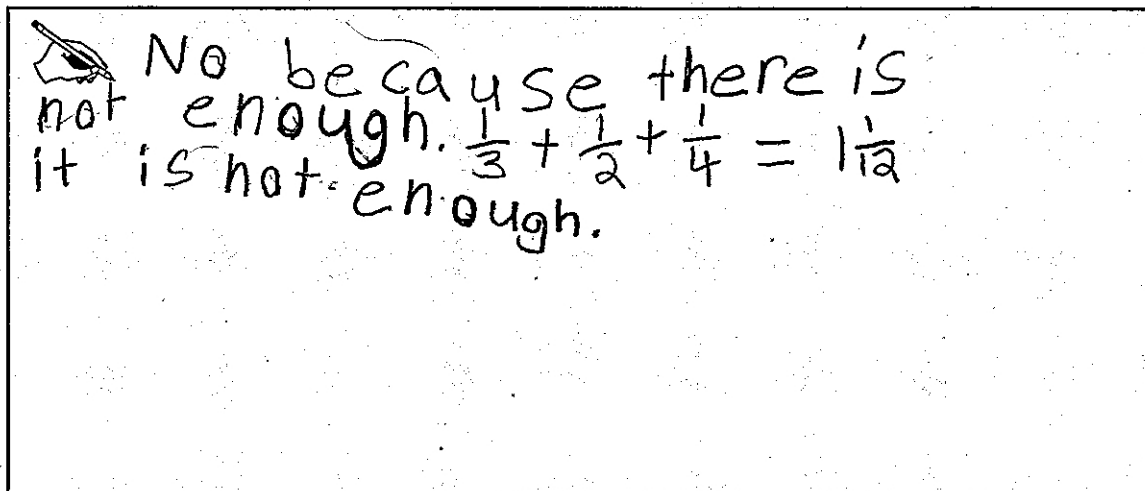 No because there is
not enough. 1/3 + 1/2 + 1/4 = 1 1/12
it is not enough.